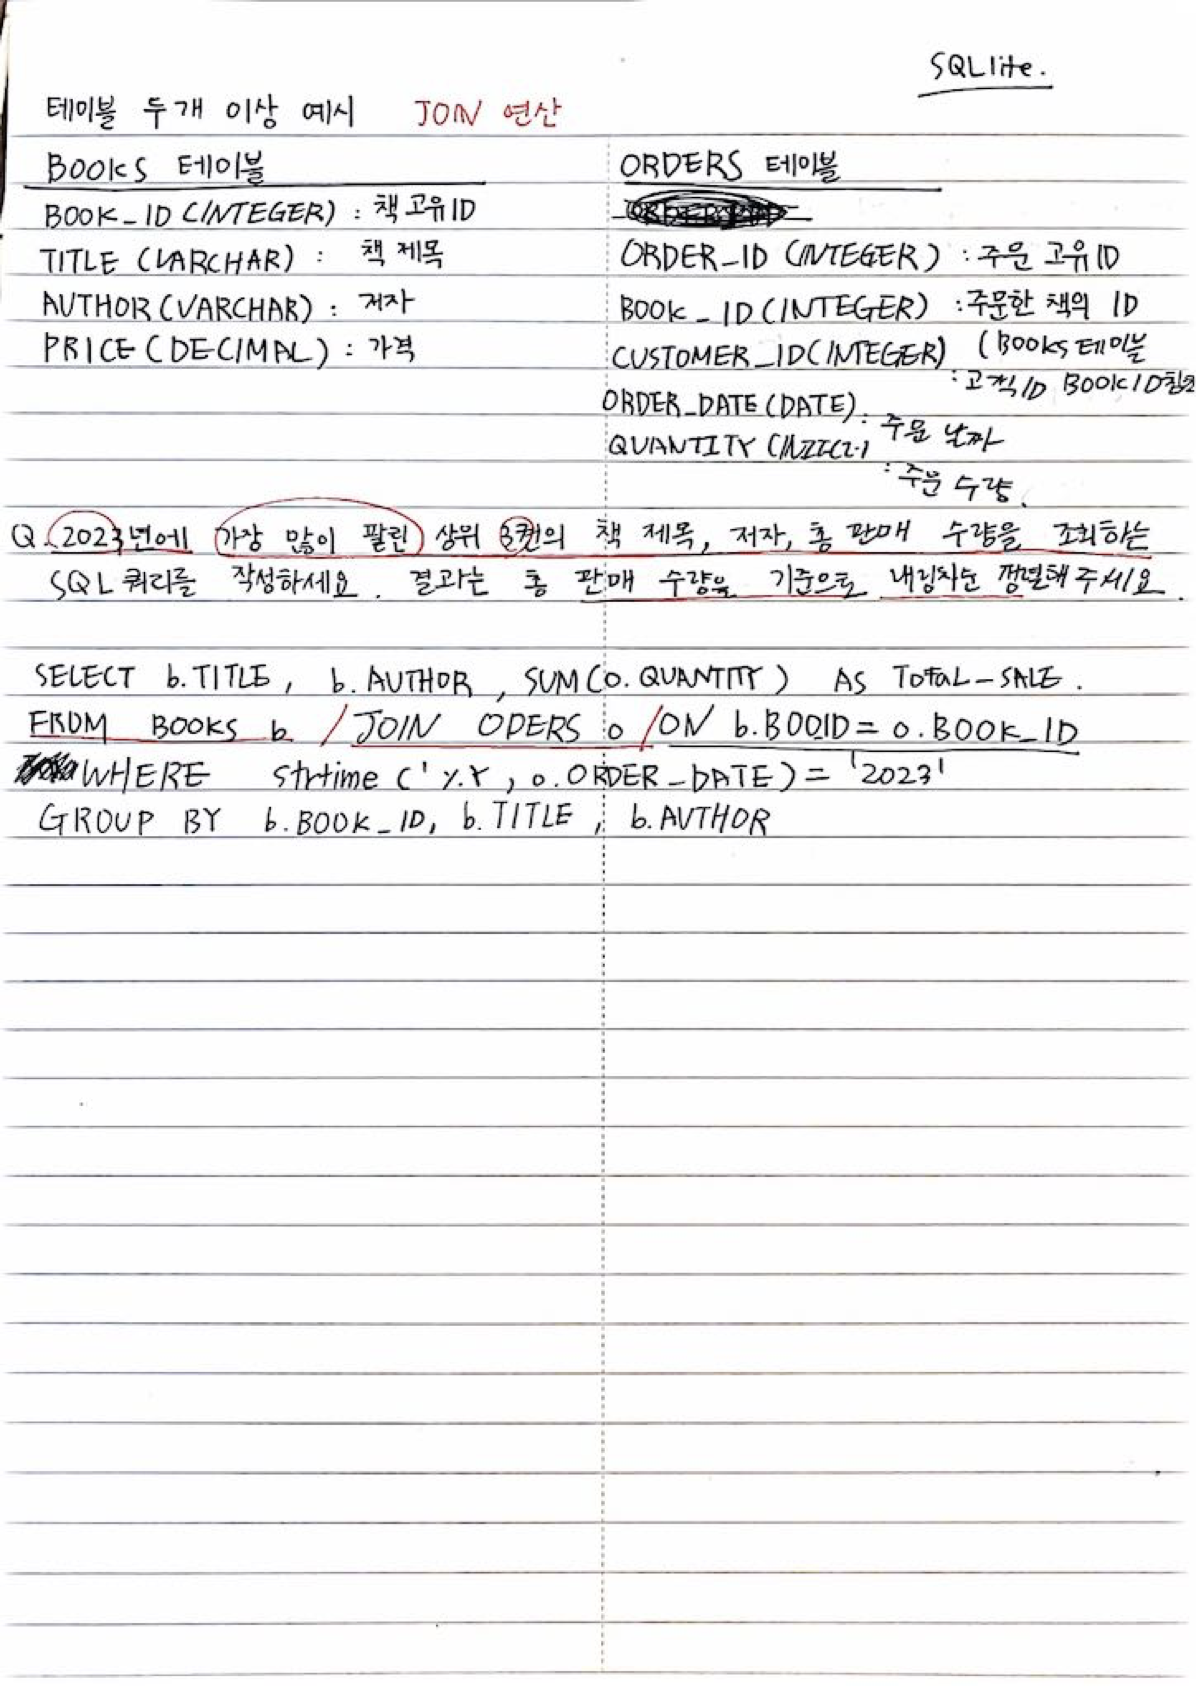 SQLlite.
테이블 두개 이상 예시 JOIN 연산
BOOKS 테이블
BOOK_ID (INTEGER) : 책 고유ID
TITLE (VARCHAR) : 책 제목
AUTHOR (VARCHAR) : 저자
PRICE (DECIMAL) : 가격
ORDERS 테이블
ORDER_ID (INTEGER) : 주문 고유ID
BOOK_ID (INTEGER) : 주문한 책의 ID
(BOOKS 테이블
BOOK ID참조
CUSTOMER_ID (INTEGER)
: 고객ID
ORDER_DATE (DATE)
: 주문 날짜
QUANTITY
: 주문 수량.
Q. 2023년에 가장 많이 팔린 상위 3권의 책 제목, 저자, 총 판매 수량을 조회하는
SQL 쿼리를 작성하세요. 결과는 총 판매 수량을 기준으로 내림차순 정렬해 주세요.
SELECT b.TITLE, b.AUTHOR, SUM(o.QUANTITY) AS TOTAL_SALE.
FROM BOOKS b / JOIN ODERS o / ON b.BOOID = o.BOOK_ID
WHERE strtime ('%.Y, o.ORDER_DATE) = '2023'
GROUP BY b.BOOK_ID, b.TITLE, b.AUTHOR